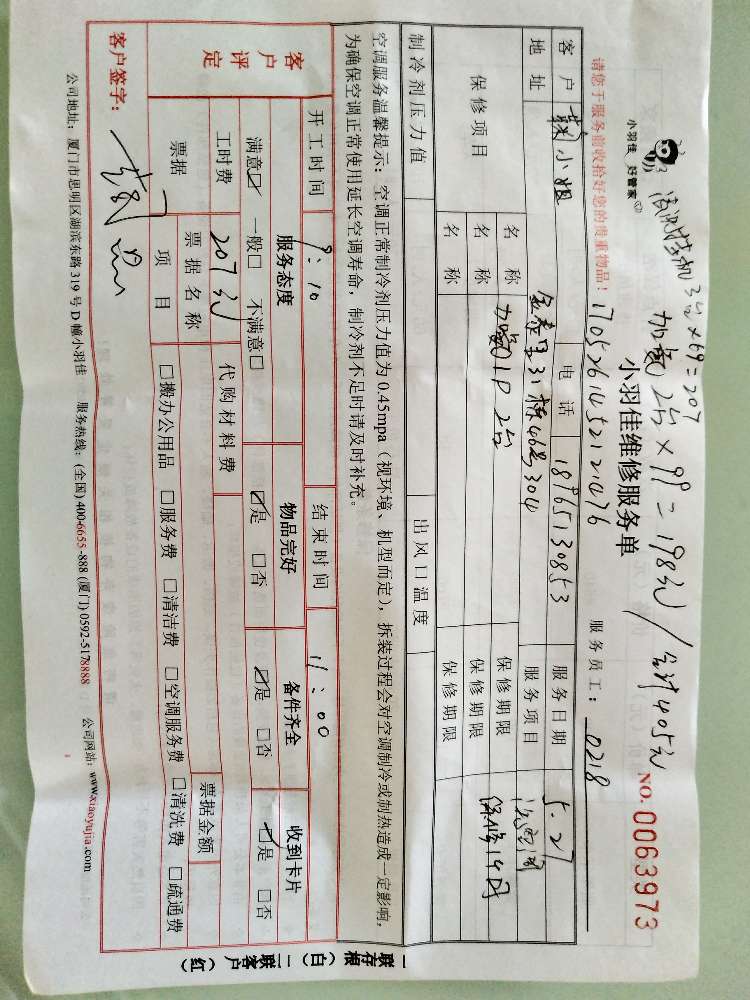 清洗挂机3台×69=207
加氨2台×99=198元/合计405元
小羽佳 好管家
小羽佳维修服务单
NO.0063973
请您于服务前收拾好您的贵重物品!
1705261452121476
服务员工: 0218
客户 小姐 电话 18965130853 服务日期 5.27
地址 31栋46号304 服务项目
保修项目 名称 加氨01P 2台 保修期限
名称 保修期限
名称 保修期限
制冷剂压力值 出风口温度
空调服务温馨提示: 空调正常制冷剂压力值为0.45mpa(视环境、机型而定),拆装过程会对空调制冷或制热造成一定影响,
为确保空调正常使用延长空调寿命,制冷剂不足时请及时补充。
开工时间 9:10 结束时间 11:00
客户评定 服务态度 物品完好 备件齐全 收到卡片
满意☑ 一般□ 不满意□ ☑是 □否 ☑是 □否 ☑是 □否
工时费 207元 代购材料费
票据 票据名称 票据金额
项目 □搬办公用品 □服务费 □清洁费 □空调服务费 □清洗费 □疏通费
客户签字:
公司地址: 厦门市思明区湖滨东路319号D幢小羽佳 服务热线: (全国)400-6655-888 (厦门)0592-5178888 公司网站: www.xiaoyujia.com
一联存根(白) 二联客户(红)